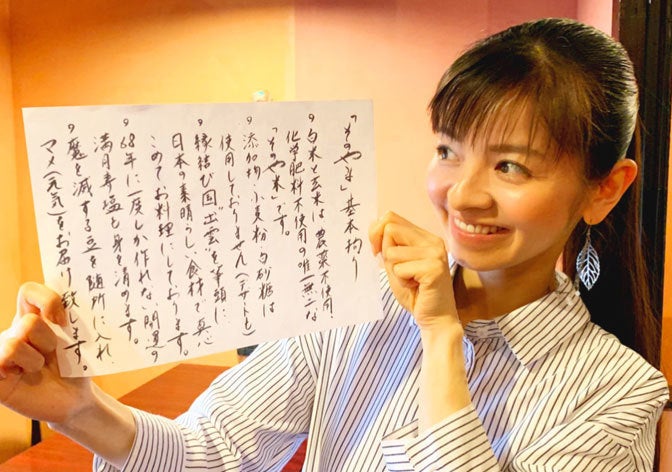 「そのやま」基本拘り
9 白米と玄米は農薬不使用、
化学肥料不使用の唯一無二な
「そのやま米」です。
9 添加物・小麦粉・白砂糖は
使用しておりません(デザートも)
9 縁結び国"出雲"を筆頭に
日本の素晴らしい食材で真心
こめてお料理にしております。
9 68年に一度しか作れない開運の
満月寿塩で身を清めます。
9 魔を滅する豆を随所に入れ、
マメ(元気)をお届け致します。